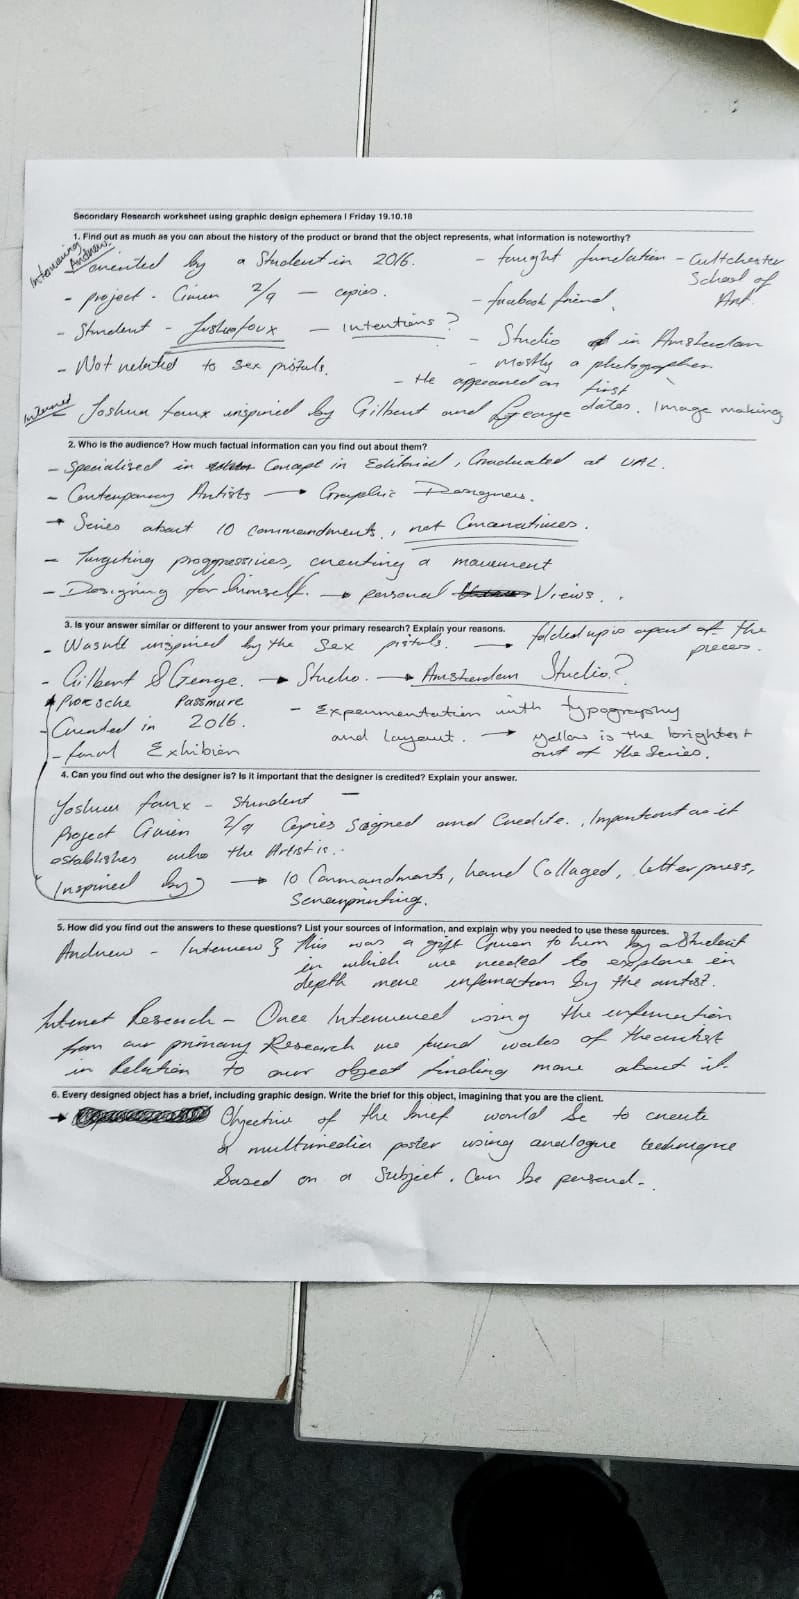 Secondary Research worksheet using graphic design ephemera | Friday 19.10.18
1. Find out as much as you can about the history of the product or brand that the object represents, what information is noteworthy?
Interviewing Andrew.
- created by a Student in 2016.
- taught foundation - Cultchester School of Art.
- project - Given 2/9 — copies.
- facebook friend.
- Student - Joshua faux — Intentions?
- Studio in Amsterdam
- Not related to Sex pistols.
- Mostly a photographer.
- He appeared on first dates. Image making
Internet
Joshua faux inspired by Gilbert and George
2. Who is the audience? How much factual information can you find out about them?
- Specialised in Concept in Editorial, Graduated at UAL.
- Contemporary Artists → Graphic Designers.
→ Series about 10 commandments, not Conservatives.
- Targiting proggressives, creating a movement
- Designing for himself. → personal Views.
3. Is your answer similar or different to your answer from your primary research? Explain your reasons.
- Wasnt inspired by the Sex pistols. → folded up is apart of the pieces.
- Gilbert & George. → Studio. → Amsterdam Studio?
Porsche Passmure
- Experimentation with typography and layout. → yellow is the brightest out of the Series.
- Created in 2016.
- final Exhibien
4. Can you find out who the designer is? Is it important that the designer is credited? Explain your answer.
Joshua faux - Student
Project Given 2/9 Copies Signed and Credite. Important as it
establishes who the Artist is.
Inspired by → 10 Commandments, hand Collaged, letterpress,
Screenprinting.
5. How did you find out the answers to these questions? List your sources of information, and explain why you needed to use these sources.
Andrew - Interview } this was a gift Given to him by a Student
in which we needed to explore in
depth more information by the artist.
Internet Research - Once Interviewed using the information
from our primary Research we found works of the artist
in Relation to our object finding more about it.
6. Every designed object has a brief, including graphic design. Write the brief for this object, imagining that you are the client.
→ Objective of the brief would be to create
a multimedia poster using analogue technique
based on a Subject. Can be personal.